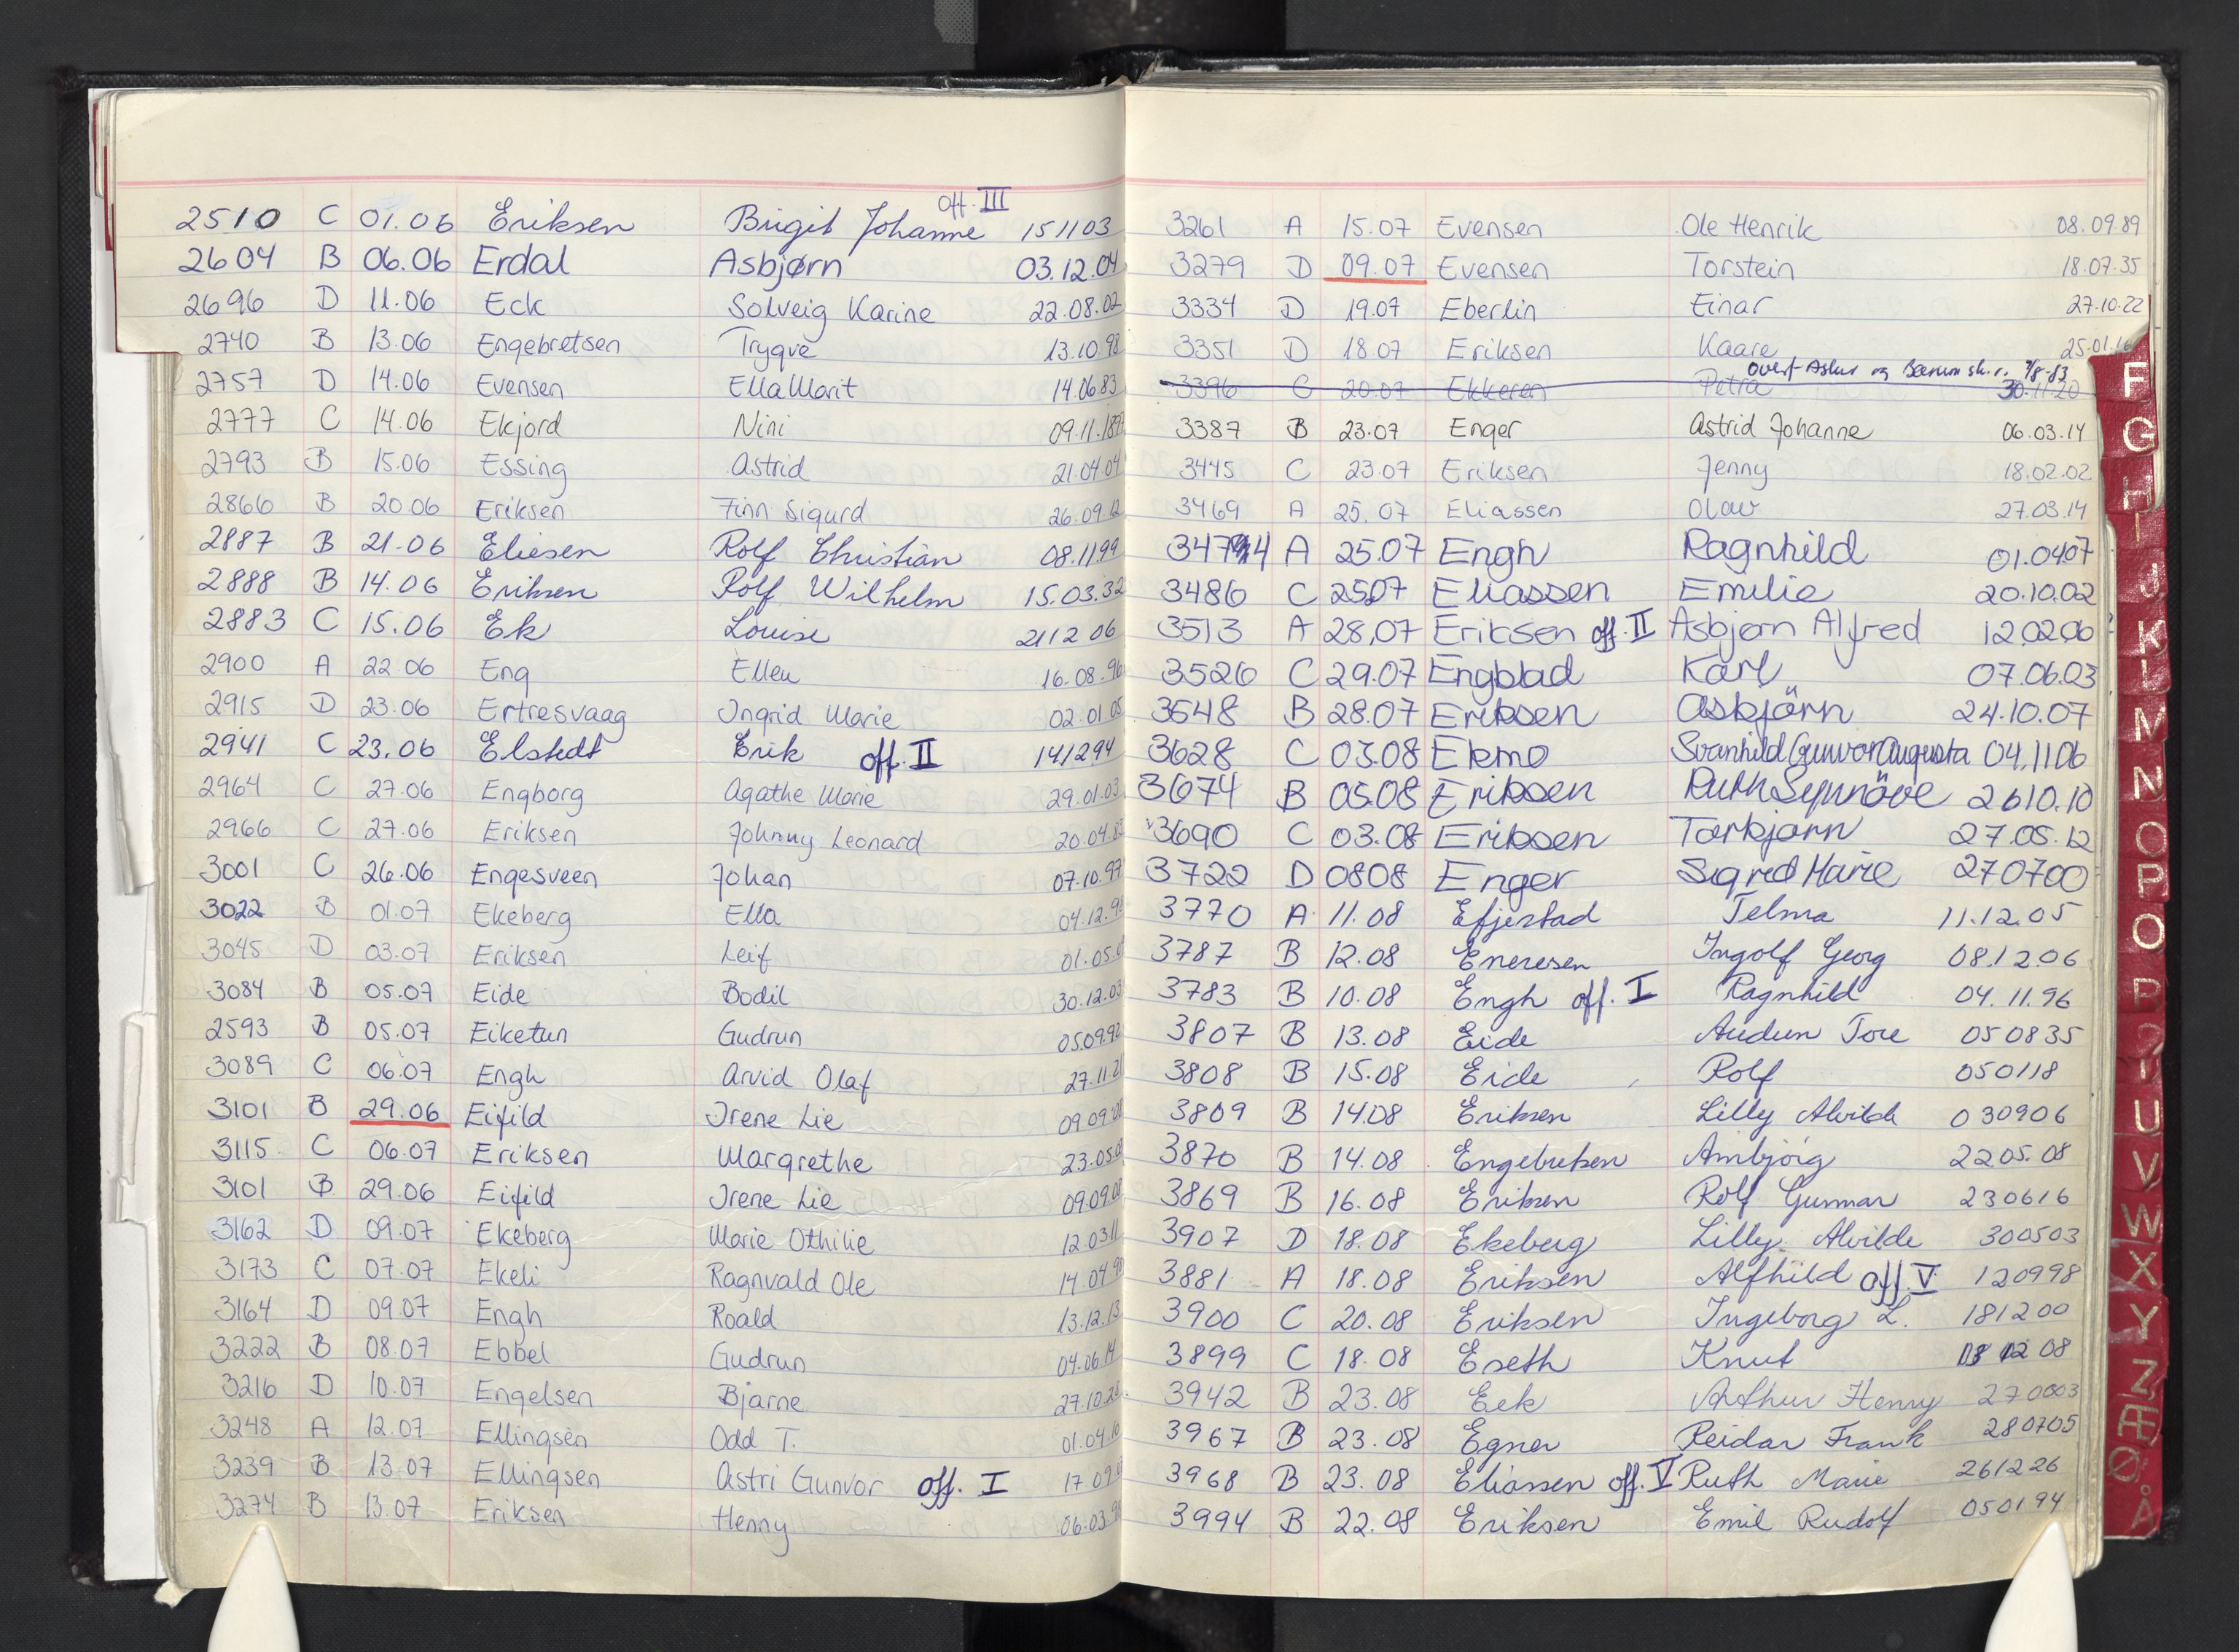 off. III
2510 C 01.06 Eriksen Birgit Johanne 151103
2604 B 06.06 Erdal Asbjørn 03.12.04
2696 D 11.06 Eck Solveig Karine 22.08.02
2740 B 13.06 Engebretsen Trygve 13.10.98
2757 D 14.06 Evensen Ella Marit 14.06.83
2777 C 14.06 Ekjord Nini 09.11.1897
2793 B 15.06 Essing Astrid 21.04.04
2866 B 20.06 Eriksen Finn Sigurd 26.09.12
2887 B 21.06 Eliesen Rolf Christian 08.1199
2888 B 14.06 Eriksen Rolf Wilhelm 15.03.32
2883 C 15.06 Ek Louise 2112 06
2900 A 22.06 Eng Ellen 16.08.96
2915 D 23.06 Ertresvaag Ingrid Marie 02.01.05
2941 C 23.06 Elstedt Erik off. II 141294
2964 C 27.06 Engborg Agathe Marie 29.01.03
2966 C 27.06 Eriksen Johnny Leonard 20.04.83
3001 C 26.06 Engesveen Johan 07.10.97
3022 B 01.07 Ekeberg Ella 04.12.9
3045 D 03.07 Eriksen Leif 01.05.
3084 B 05.07 Eide Bodil 30.12.03
2593 B 05.07 Eiketun Gudrun 05.09.92
3089 C 06.07 Engh Arvid Olaf 27.11.21
3101 B 29.06 Eifild Irene Lie 09.09.08
3115 C 06.07 Eriksen Margrethe 23.05.0
3101 B 29.06 Eifild Irene Lie 09.09.08
3162 D 09.07 Ekeberg Marie Othilie 12.0311
3173 C 07.07 Ekeli Ragnvald Ole 14.04.98
3164 D 09.07 Engh Roald 13.12.13
3222 B 08.07 Ebbel Gudrun 04.06.14
3216 D 10.07 Engelsen Bjarne 27.10.28
3248 A 12.07 Ellingsen Odd T. 01.04.10
3239 B 13.07 Ellingsen Astri Gunvor off. I 17.09.
3274 B 13.07 Eriksen Henny 06.03.98
3261 A 15.07 Evensen Ole Henrik 08.09.89
3279 D 09.07 Evensen Torstein 18.07.35
3334 D 19.07 Eberlin Einar 27.10.22
3351 D 18.07 Eriksen Kaare 25.01.16
overf. Asker og Bærum sk.r. 9/8-83
3396 C 20.07 Ekkeren Petra 30.11.20
3387 B 23.07 Enger Astrid Johanne 06.03.14
3445 C 23.07 Eriksen Jenny 18.02.02
3469 A 25.07 Eliassen Olav 27.03.14
3474 A 25.07 Engh Ragnhild 01.0407
3486 C 25.07 Eliassen Emilie 20.10.02
3513 A 28.07 Eriksen off. II Asbjørn Alfred 12.02.06
3526 C 29.07 Engblad Karl 07.06.03
3548 B 28.07 Eriksen Asbjörn 24.10.07
3628 C 03.08 Ekmo Svanhild Gunvor Augusta 04.1106
3674 B 05.08 Eriksen Ruth Synnöve 2610.10
3690 C 03.08 Eriksen Torbjørn 27.05.12
3722 D 0808 Enger Sigrid Marie 270700
3770 A 11.08 Efjestad Telma 11.12.05
3787 B 12.08 Eneresen Ingolf Georg 08.12.06
3783 B 10.08 Engh off. I Ragnhild 04.11.96
3807 B 13.08 Eide Audun Tore 050835
3808 B 15.08 Eide Rolf 050118
3809 B 14.08 Eriksen Lilly Alvilde 030906
3870 B 14.08 Engebretsen Arnbjørg 22.05.08
3869 B 16.08 Eriksen Rolf Gunnar 230616
3907 D 18.08 Ekeberg Lilly Alvilde 300503
3881 A 18.08 Eriksen Alfhild off V 120998
3900 C 20.08 Eriksen Ingeborg L. 181200
3899 C 18.08 Eseth Knut 12 08
3942 B 23.08 Eek Arthur Henry
3967 B 23.08 Egner Reidar Frank 280705
3968 B 23.08 Eliassen off. V Ruth Marie 261226
3994 B 22.08 Eriksen Emil Rudolf 050194
F
G
H
I
J
K
L
M
N
O
P
O
P
U
V
W
X
Y
Z
Æ
Ø
Å